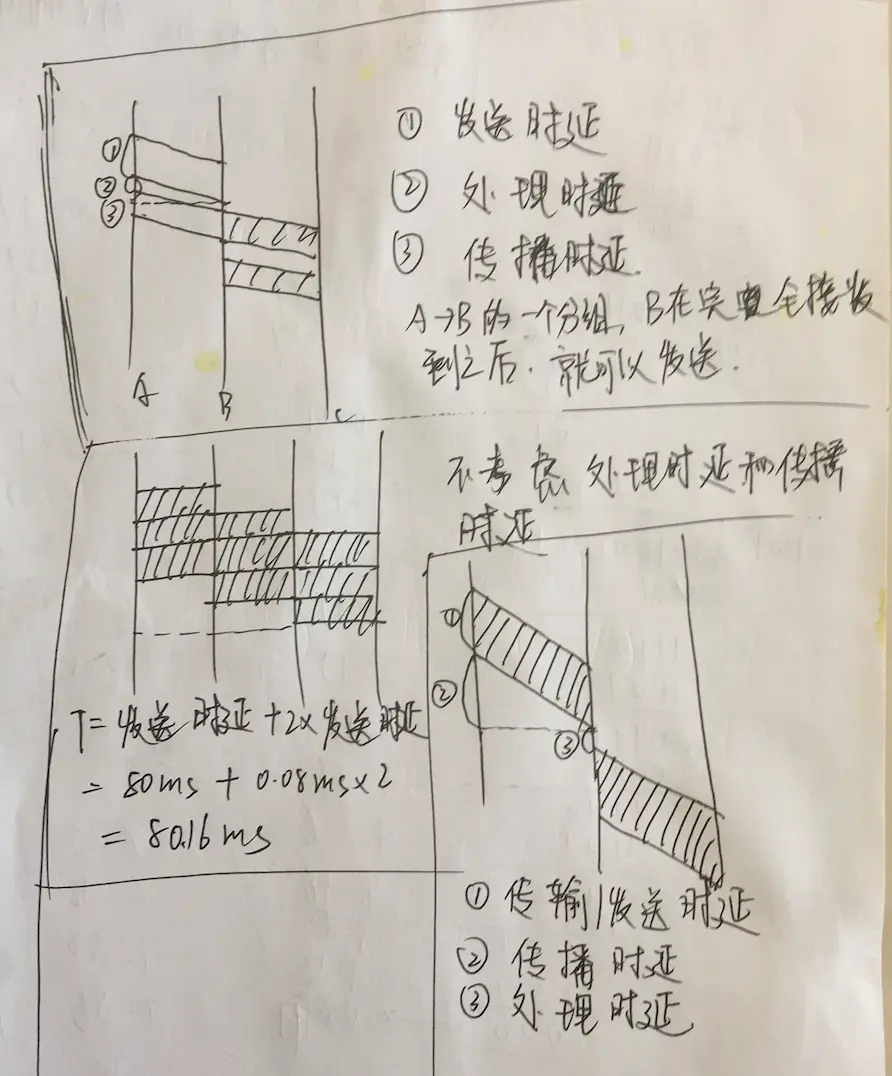 ① 发送时延
② 处理时延
③ 传播时延.
A→B的一个分组, B在完全接收
到之后, 就可以发送.
①
②
③
A
B
C
不考虑 处理时延和传播
时延
T= 发送时延 +2× 发送时延
= 80ms + 0.08ms×2
= 80.16ms
①
②
③
① 传输/发送时延
② 传播时延
③ 处理时延